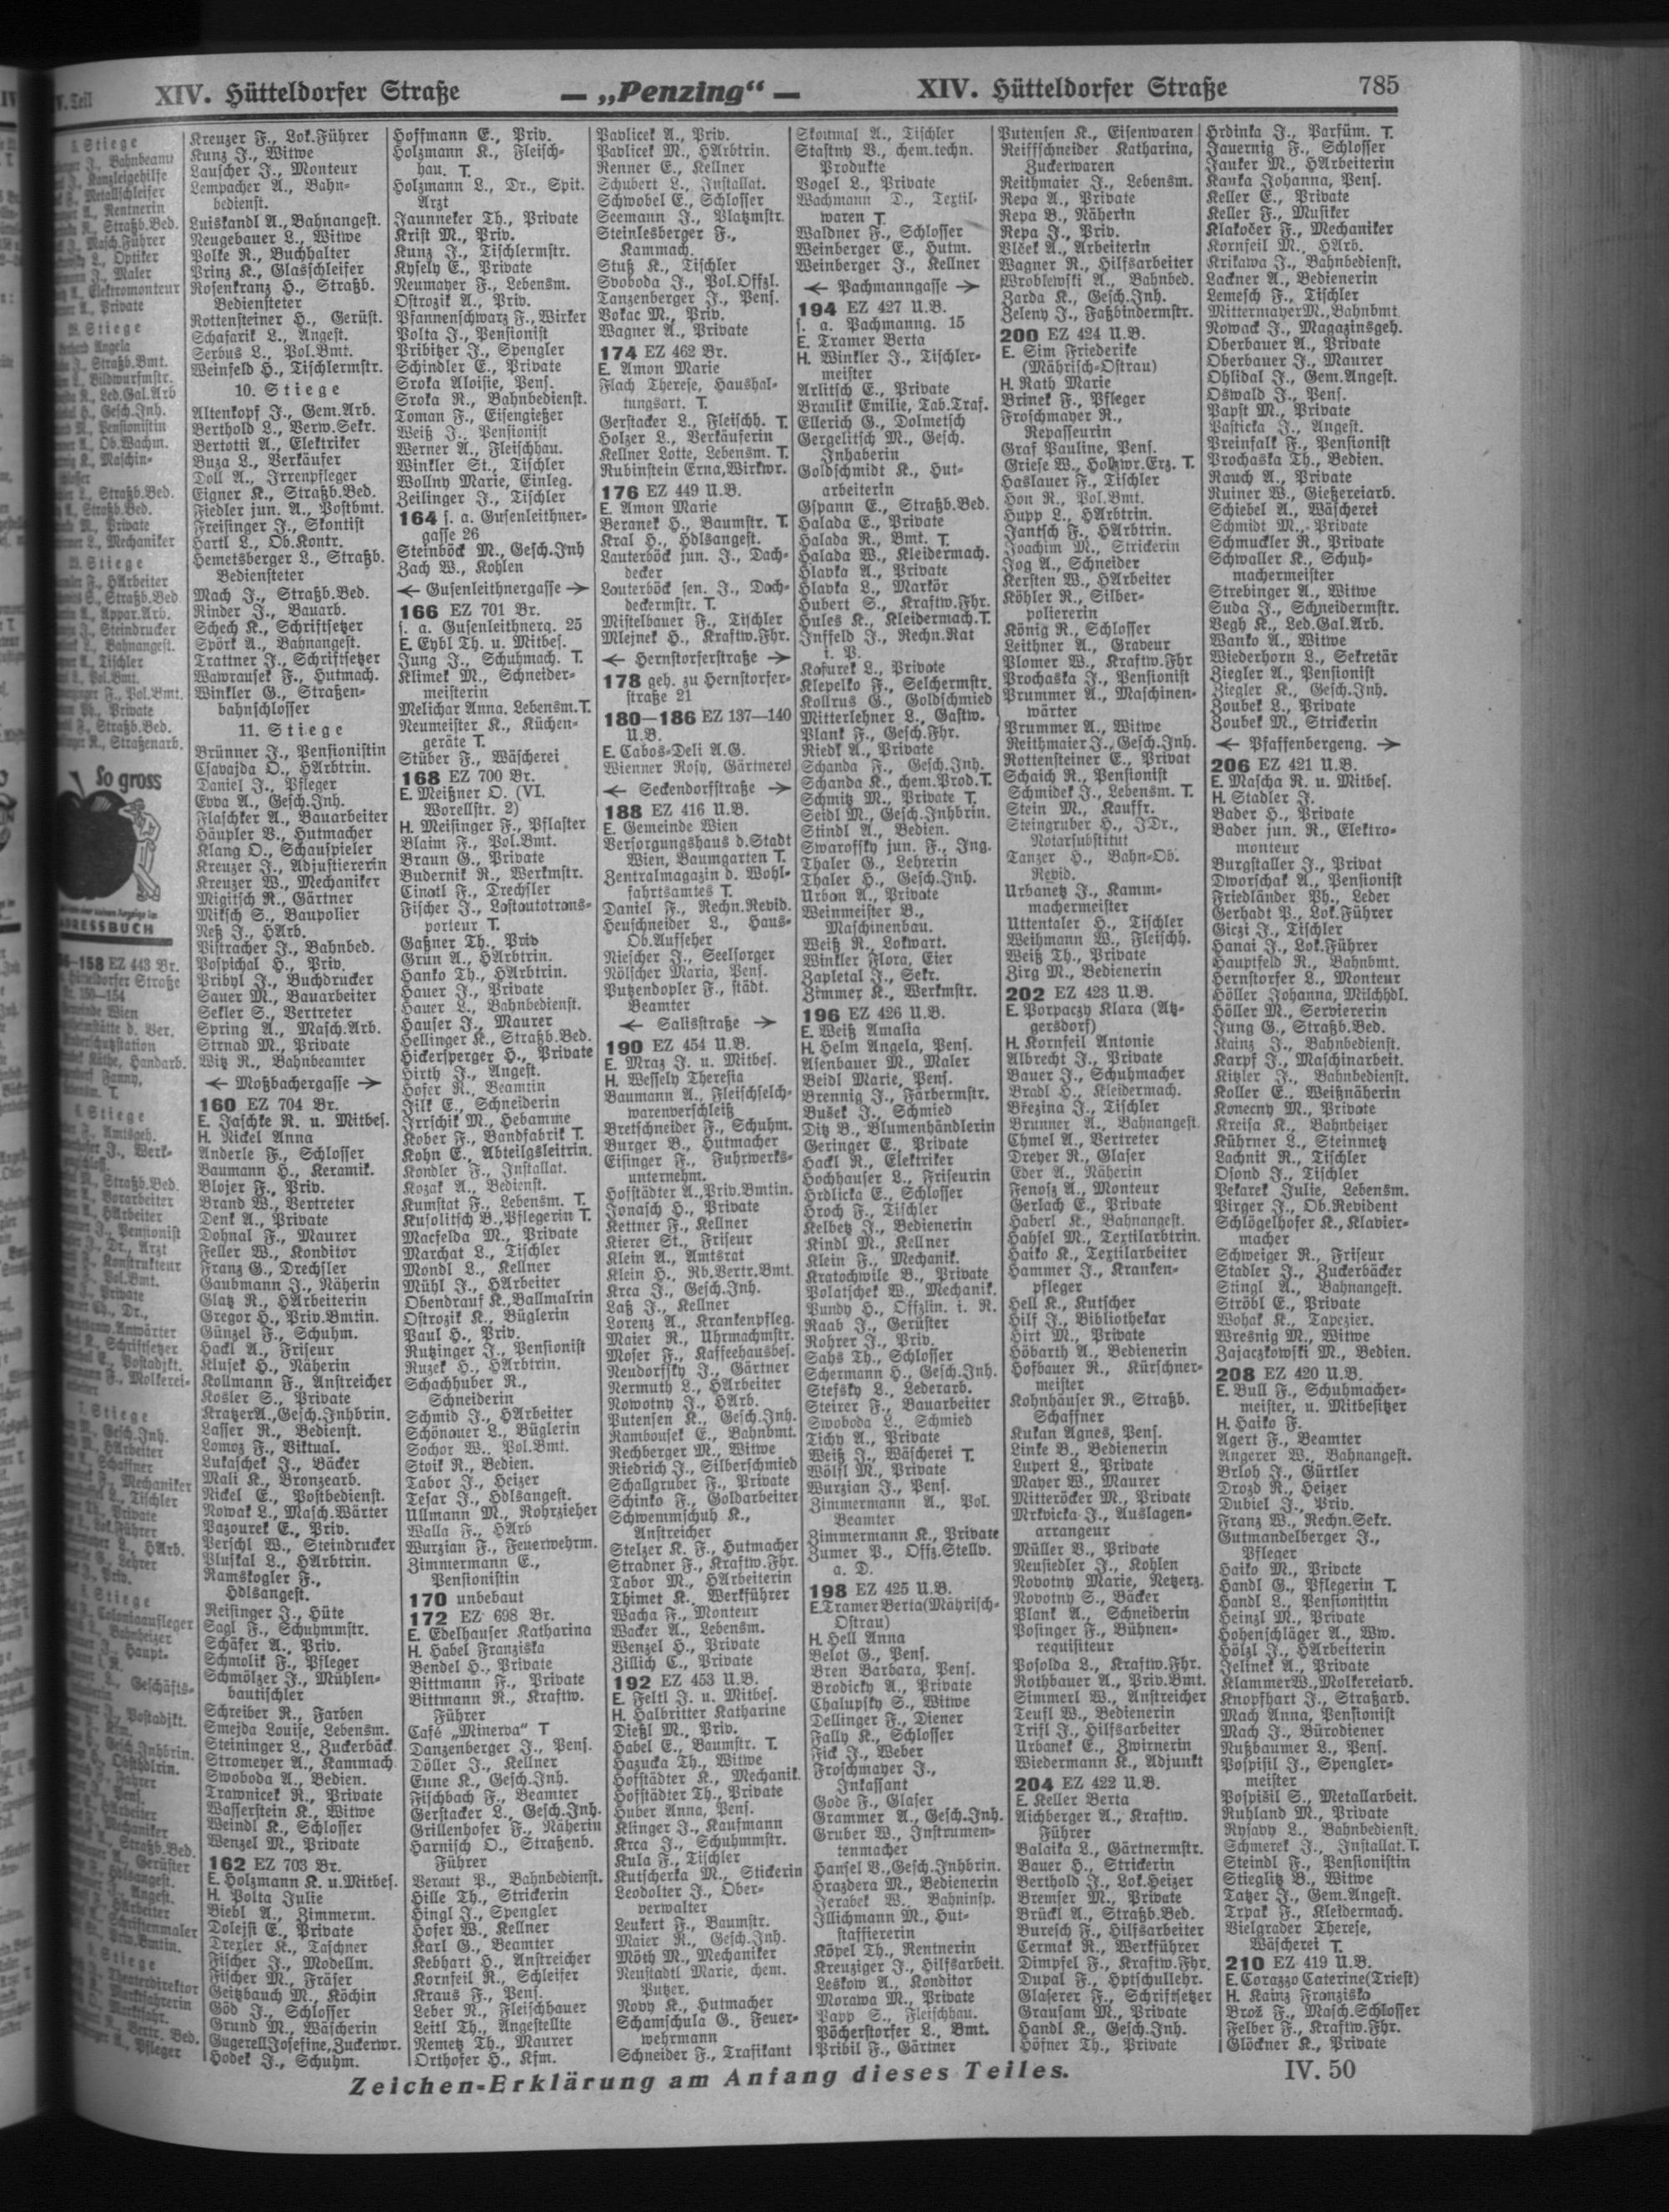 IV. Teil
XIV. Hütteldorfer Straße
— „Penzing“ —
XIV. Hütteldorfer Straße
785
Kreuzer F., Lok.Führer
Kunz J., Witwe
Lauscher J., Monteur
Lempacher A., Bahn-
bedienst.
Luiskandl A., Bahnangest.
Neugebauer L., Witwe
Polke R., Buchhalter
Prinz K., Glasschleifer
Rosenkranz H., Straßb.
Bediensteter
Rottensteiner H., Gerüst.
Schafarik L., Angest.
Serbus L., Pol.Bmt.
Weinfeld H., Tischlermstr.
10. Stiege
Altenkopf J., Gem.Arb.
Berthold L., Verw.Sekr.
Bertotti A., Elektriker
Buza L., Verkäufer
Doll A., Irrenpfleger
Eigner K., Straßb.Bed.
Fiedler jun. A., Postbmt.
Freisinger J., Skontist
Hartl L., Ob.Kontr.
Hemetsberger L., Straßb.
Bediensteter
Mach J., Straßb.Bed.
Rinder J., Bauarb.
Schech K., Schriftsetzer
Spörk A., Bahnangest.
Trattner J., Schriftsetzer
Wawrausek F., Hutmach.
Winkler G., Straßen-
bahnschlosser
11. Stiege
Brünner J., Pensionistin
Csavajda O., HArbtrin.
Daniel J., Pfleger
Evva A., Gesch.Inh.
Flaschker A., Bauarbeiter
Häupler B., Hutmacher
Klang O., Schauspieler
Kreuzer J., Adjustiererin
Kreuzer W., Mechaniker
Migitsch R., Gärtner
Miksch S., Baupolier
Neß J., HArb.
Pistracher J., Bahnbed.
Pospichal H., Priv.
Pribyl J., Buchdrucker
Sauer M., Bauarbeiter
Sekler S., Vertreter
Spring A., Masch.Arb.
Strnad M., Private
Witz R., Bahnbeamter
← Moßbachergasse →
160 EZ 704 Br.
E. Jaschke R. u. Mitbes.
H. Nickel Anna
Anderle F., Schlosser
Baumann H., Keramik.
Blojer F., Priv.
Brand W., Vertreter
Denk A., Private
Dohnal F., Maurer
Feller W., Konditor
Franz G., Drechsler
Gaubmann J., Näherin
Glatz R., HArbeiterin
Gregor H., Priv.Bmtin.
Günzel F., Schuhm.
Hackl A., Friseur
Klusek H., Näherin
Kollmann F., Anstreicher
Kosler S., Private
Kratzer A., Gesch.Inhbrin.
Lasser R., Bedienst.
Lomoz F., Viktual.
Lukaschek J., Bäcker
Mali K., Bronzearb.
Nickel E., Postbedienst.
Nowak L., Masch.Wärter
Pazourek E., Priv.
Perschl W., Steindrucker
Pluskal L., HArbtrin.
Ramskogler F.,
Hdlsangest.
Reisinger J., Hüte
Sagl F., Schuhmmstr.
Schäfer A., Priv.
Schmolik F., Pfleger
Schmölzer J., Mühlen-
bautischler
Schreiber R., Farben
Smejda Louise, Lebensm.
Steininger L., Zuckerbäck.
Stromeyer A., Kammach.
Swoboda A., Bedien.
Trawnicek R., Private
Wasserstein K., Witwe
Weindl K., Schlosser
Wenzel M., Private
162 EZ 703 Br.
E. Holzmann K. u.Mitbes.
H. Polta Julie
Biebl A., Zimmerm.
Dolejsi E., Private
Drexler K., Taschner
Fischer J., Modellm.
Fischer M., Fräser
Geitzbauch M., Köchin
Göd J., Schlosser
Grund M., Wäscherin
Gugerell Josefine, Zuckerwr.
Hodek J., Schuhm.
Hoffmann E., Priv.
Holzmann K., Fleisch-
hau. T.
Holzmann L., Dr., Spit.
Arzt
Jaunneker Th., Private
Krist M., Priv.
Kunz J., Tischlermstr.
Kysely E., Private
Neumayer F., Lebensm.
Ostrozik A., Priv.
Pfannenschwarz F., Wirker
Polta J., Pensionist
Pribitzer J., Spengler
Schindler E., Private
Sroka Aloisie, Pens.
Sroka R., Bahnbedienst.
Toman F., Eisengießer
Weiß J., Pensionist
Werner A., Fleischhau.
Winkler St., Tischler
Wollny Marie, Einleg.
Zeilinger J., Tischler
164 s. a. Gusenleithner-
gasse 26
Steinböck M., Gesch.Inh
Zach W., Kohlen
← Gusenleithnergasse →
166 EZ 701 Br.
s. a. Gusenleithnerg. 25
E. Eybl Th. u. Mitbes.
Jung J., Schuhmach. T.
Klimek M., Schneider-
meisterin
Melichar Anna, Lebensm.T.
Neumeister K., Küchen-
geräte T.
Stüber F., Wäscherei
168 EZ 700 Br.
E. Meißner O. (VI.
Worellstr. 2)
H. Meisinger F., Pflaster
Blaim F., Pol.Bmt.
Braun G., Private
Budernik R., Werkmstr.
Cinatl F., Drechsler
Fischer J., Lastautotrans-
porteur T.
Gaßner Th., Priv
Grün A., HArbtrin.
Hanko Th., HArbtrin.
Hauer J., Private
Hauer L., Bahnbedienst.
Hauser J., Maurer
Hellinger K., Straßb.Bed.
Hickersperger H., Private
Hirth J., Angest.
Hofer R., Beamtin
Jilk E., Schneiderin
Irrschik M., Hebamme
Kober F., Bandfabrik T.
Kohn E., Abteilgsleitrin.
Kondler F., Installat.
Kozak A., Bedienst.
Kumstat F., Lebensm. T.
Kusolitsch B., Pflegerin T.
Macfelda M., Private
Marchat L., Tischler
Mondl L., Kellner
Mühl J., HArbeiter
Obendrauf K., Ballmalrin
Ostrozik K., Büglerin
Paul H., Priv.
Rutzinger J., Pensionist
Ruzek H., HArbtrin.
Schachhuber R.,
Schneiderin
Schmid J., HArbeiter
Schönauer L., Büglerin
Sochor W., Pol.Bmt.
Stoik R., Bedien.
Tabor J., Heizer
Tesar J., Hdlsangest.
Ullmann M., Rohrzieher
Walla F., HArb
Wurzian F., Feuerwehrm.
Zimmermann E.,
Pensionistin
170 unbebaut
172 EZ 698 Br.
E. Edelhauser Katharina
H. Habel Franziska
Bendel H., Private
Bittmann F., Private
Bittmann R., Kraftw.
Führer
Café „Minerva“ T
Danzenberger J., Pens.
Döller J., Kellner
Eune K., Gesch.Inh.
Fischbach F., Beamter
Gerstacker L., Gesch.Inh.
Grillenhofer F., Näherin
Harnisch O., Straßenb.
Führer
Veraut P., Bahnbedienst.
Hille Th., Strickerin
Hingl J., Spengler
Hofer W., Kellner
Karl G., Beamter
Kebhart H., Anstreicher
Kornfeil R., Schleifer
Kraus F., Pens.
Leber N., Fleischhauer
Leitl Th., Angestellte
Nemetz Th., Maurer
Orthofer H., Kfm.
Pavlicek A., Priv.
Pavlicek M., HArbtrin.
Renner E., Kellner
Schubert L., Installat.
Schwobel E., Schlosser
Seemann J., Platzmstr.
Steinlesberger F.,
Kammach.
Stuß K., Tischler
Svoboda J., Pol.Offzl.
Tanzenberger J., Pens.
Vokac M., Priv.
Wagner A., Private
174 EZ 462 Br.
E. Amon Marie
Flach Therese, Haushal-
tungsart. T.
Gerstacker L., Fleischh. T.
Holzer L., Verkäuferin
Kellner Lotte, Lebensm. T.
Rubinstein Erna, Wirkwr.
176 EZ 449 U.B.
E. Amon Marie
Beranek H., Baumstr. T.
Kral H., Hdlsangest.
Lauterböck jun. J., Dach-
decker
Lauterböck sen. J., Dach-
deckermstr. T.
Mistelbauer F., Tischler
Mlejnek H., Kraftw.Fhr.
← Hernstorferstraße →
178 geh. zu Hernstorfer-
straße 21
180—186 EZ 137—140
U.B.
E. Cabos-Deli A.G.
Wienner Rosy, Gärtnerei
← Seckendorfstraße →
188 EZ 416 U.B.
E. Gemeinde Wien
Versorgungshaus d.Stadt
Wien, Baumgarten T.
Zentralmagazin d. Wohl-
fahrtsamtes T.
Daniel F., Rechn.Revid.
Heuschneider L., Haus-
Ob.Aufseher
Niescher J., Seelsorger
Nölscher Maria, Pens.
Putzendopler F., städt.
Beamter
← Salisstraße →
190 EZ 454 U.B.
E. Mraz J. u. Mitbes.
H. Wessely Theresia
Baumann A., Fleischselch-
warenverschleiß
Bretschneider F., Schuhm.
Burger B., Hutmacher
Eisinger F., Fuhrwerks-
unternehm.
Hofstädter A., Priv.Bmtin.
Jonasch H., Private
Kettner F., Kellner
Kierer St., Friseur
Klein A., Amtsrat
Klein H., Rb.Vertr.Bmt.
Krca J., Gesch.Inh.
Laß J., Kellner
Lorenz A., Krankenpfleg.
Maier R., Uhrmachmstr.
Moser F., Kaffeehausbes.
Neudorfsky J., Gärtner
Nermuth L., HArbeiter
Nowotny J., HArb.
Putensen K., Gesch.Inh.
Rambousek E., Bahnbmt.
Rechberger M., Witwe
Riedrich J., Silberschmied
Schallgruber F., Private
Schinko F., Goldarbeiter
Schwemmschuh K.,
Anstreicher
Stelzer K. F., Hutmacher
Stradner F., Kraftw.Fhr.
Tabor M., HArbeiterin
Thimet K., Werkführer
Wacha F., Monteur
Wacker A., Lebensm.
Wenzel H., Private
Zillich E., Private
192 EZ 453 U.B.
E. Feltl J. u. Mitbes.
H. Halbritter Katharine
Dießl M., Priv.
Habel E., Baumstr. T.
Hazucka Th., Witwe
Hofstädter K., Mechanik.
Hofstädter Th., Private
Huber Anna, Pens.
Klinger J., Kaufmann
Krca J., Schuhmmstr.
Kula F., Tischler
Kutscherka M., Stickerin
Leodolter J., Ober-
verwalter
Leukert F., Baumstr.
Maier R., Gesch.Inh.
Möth M., Mechaniker
Neustadtl Marie, chem.
Putzer.
Novy K., Hutmacher
Schamschula G., Feuer-
wehrmann
Schneider F., Trafikant
Skoumal A., Tischler
Stastny V., chem.techn.
Produkte
Vogel L., Private
Wachmann D., Textil-
waren T.
Waldner F., Schlosser
Weinberger E., Hutm.
Weinberger J., Kellner
← Pachmanngasse →
194 EZ 427 U.B.
s. a. Pachmanng. 15
E. Tramer Berta
H. Winkler J., Tischler-
meister
Arlitsch E., Private
Braulik Emilie, Tab.Traf.
Ellerich G., Dolmetsch
Gergelitsch M., Gesch.
Inhaberin
Goldschmidt K., Hut-
arbeiterin
Gspann E., Straßb.Bed.
Halada E., Private
Halada R., Bmt. T.
Halada W., Kleidermach.
Hlavka A., Private
Hlavka L., Markör
Hubert S., Kraftw.Fhr.
Hules K., Kleidermach.T.
Innfeld J., Rechn.Rat
i. P.
Kasurek L., Private
Klepelko F., Selchermstr.
Kollrus G., Goldschmied
Mitterlehner L., Gastw.
Plank F., Gesch.Fhr.
Riedl A., Private
Schanda F., Gesch.Inh.
Schanda K., chem.Prod.T.
Schmitz M., Private T.
Seidl M., Gesch.Inhbrin.
Stindl A., Bedien.
Swaroffsky jun. F., Ing.
Thaler G., Lehrerin
Thaler H., Gesch.Inh.
Urban A., Private
Weinmeister B.,
Maschinenbau.
Weiß R., Lokwart.
Winkler Flora, Eier
Zapletal J., Sekr.
Zimmer K., Werkmstr.
196 EZ 426 U.B.
E. Weiß Amalia
H. Helm Angela, Pens.
Asenbauer M., Maler
Beidl Marie, Pens.
Brennig J., Färbermstr.
Bušek J., Schmied
Ditz B., Blumenhändlerin
Geringer E., Private
Hackl R., Elektriker
Hochhauser L., Friseurin
Hrdlicka E., Schlosser
Hroch F., Tischler
Kelbetz J., Bedienerin
Kindl M., Kellner
Klein F., Mechanik.
Kratochwile B., Private
Polatschek W., Mechanik.
Pundy H., Offzlin. i. R.
Raab J., Gerüster
Rohrer J., Priv.
Sahs Th., Schlosser
Schermann H., Gesch.Inh.
Stefsky L., Lederarb.
Steirer F., Bauarbeiter
Swoboda L., Schmied
Tichy A., Private
Weiß J., Wäscherei T.
Wölfl M., Private
Wurzian J., Pens.
Zimmermann A., Pol.
Beamter
Zimmermann K., Private
Zumer P., Offz.Stellv.
a. D.
198 EZ 425 U.B.
E.Tramer Berta(Mährisch-
Ostrau)
H. Hell Anna
Belot G., Pens.
Bren Barbara, Pens.
Brodicky A., Private
Chalupsky S., Witwe
Dellinger F., Diener
Fally K., Schlosser
Fick J., Weber
Froschmayer J.,
Inkassant
Gode F., Glaser
Grammer A., Gesch.Inh.
Gruber W., Instrumen-
tenmacher
Hansel V., Gesch.Inhbrin.
Hrazdera M., Bedienerin
Jerabek W., Bahninsp.
Illichmann M., Hut-
staffiererin
Köpel Th., Rentnerin
Kreuziger J., Hilfsarbeit.
Leskow A., Konditor
Morawa M., Private
Papp S., Fleischhau.
Pöcherstorfer L., Bmt.
Pribil F., Gärtner
Putensen K., Eisenwaren
Reiffschneider Katharina,
Zuckerwaren
Reithmaier J., Lebensm.
Repa A., Private
Repa B., Näherin
Repa J., Priv.
Vlček A., Arbeiterin
Wagner R., Hilfsarbeiter
Wroblewski A., Bahnbed.
Zarda K., Gesch.Inh.
Zeleny J., Faßbindermstr.
200 EZ 424 U.B.
E. Sim Friederike
(Mährisch-Ostrau)
H. Rath Marie
Brinek F., Pfleger
Froschmayer R.,
Repasseurin
Graf Pauline, Pens.
Griese W., Holzwr.Erz. T.
Haslauer F., Tischler
Hon R., Pol.Bmt.
Hupp L., HArbtrin.
Jantsch F., HArbtrin.
Joachim M., Strickerin
Jog A., Schneider
Kersten W., HArbeiter
Köhler R., Silber-
poliererin
König R., Schlosser
Leithner A., Graveur
Plomer W., Kraftw.Fhr
Prochaska J., Pensionist
Prummer A., Maschinen-
wärter
Prummer A., Witwe
Reithmaier J., Gesch.Inh.
Rottensteiner E., Privat
Schaich R., Pensionist
Schmidek J., Lebensm. T.
Stein M., Kauffr.
Steingruber H., JDr.,
Notarsubstitut
Tanzer H., Bahn-Ob.
Revid.
Urbanetz J., Kamm-
machermeister
Uttentaler H., Tischler
Weihmann W., Fleischh.
Weiß Th., Private
Zirg M., Bedienerin
202 EZ 423 U.B.
E. Porpaczy Klara (Atz-
gersdorf)
H. Kornfeil Antonie
Albrecht J., Private
Bauer J., Schuhmacher
Bradl H., Kleidermach.
Březina J., Tischler
Brunner A., Bahnangest.
Chmel A., Vertreter
Dreyer R., Glaser
Eder A., Näherin
Fenosz A., Monteur
Gerlach E., Private
Haberl K., Bahnangest.
Hahsel M., Textilarbtrin.
Haiko K., Textilarbeiter
Hammer J., Kranken-
pfleger
Hell K., Kutscher
Hilf J., Bibliothekar
Hirt M., Private
Höbarth A., Bedienerin
Hofbauer R., Kürschner-
meister
Kohnhäuser R., Straßb.
Schaffner
Kukan Agnes, Pens.
Linke B., Bedienerin
Lupert L., Private
Mayer W., Maurer
Mitteröcker M., Private
Mrkvicka J., Auslagen-
arrangeur
Müller B., Private
Neusiedler J., Kohlen
Novotny Marie, Netzerz.
Novotny S., Bäcker
Plank A., Schneiderin
Posinger F., Bühnen-
requisiteur
Posolda L., Kraftw.Fhr.
Rothbauer A., Priv.Bmt.
Simmerl W., Anstreicher
Teufl W., Bedienerin
Trifl J., Hilfsarbeiter
Urbanek E., Zwirnerin
Wiedermann K., Adjunkt
204 EZ 422 U.B.
E. Keller Berta
Aichberger A., Kraftw.
Führer
Balaika L., Gärtnermstr.
Bauer H., Strickerin
Berthold J., Lok.Heizer
Bremser M., Private
Brückl A., Straßb.Bed.
Buresch F., Hilfsarbeiter
Cermak R., Werkführer
Dimpfel F., Kraftw.Fhr.
Dupal F., Hptschullehr.
Glaserer F., Schriftsetzer
Grausam M., Private
Handl K., Gesch.Inh.
Höfner Th., Private
Hrdinka J., Parfüm. T.
Jauernig F., Schlosser
Jauker M., HArbeiterin
Kanka Johanna, Pens.
Keller E., Private
Keller F., Musiker
Klakočer F., Mechaniker
Kornfeil M., HArb.
Krikawa J., Bahnbedienst.
Lackner A., Bedienerin
Lemesch F., Tischler
Mittermayer M., Bahnbmt
Nowack J., Magazinsgeh.
Oberbauer A., Private
Oberbauer J., Maurer
Ohlidal J., Gem.Angest.
Oswald J., Pens.
Papst M., Private
Pasticka J., Angest.
Preinfalk F., Pensionist
Prochaska Th., Bedien.
Rauch A., Private
Ruiner W., Gießereiarb.
Schiebel A., Wäscherei
Schmidt M., Private
Schmuckler R., Private
Schwaller K., Schuh-
machermeister
Strebinger A., Witwe
Suda J., Schneidermstr.
Vegh K., Led.Gal.Arb.
Wanko A., Witwe
Wiederhorn L., Sekretär
Ziegler A., Pensionist
Ziegler K., Gesch.Inh.
Zoubek L., Private
Zoubek M., Strickerin
← Pfaffenbergeng. →
206 EZ 421 U.B.
E. Mascha R. u. Mitbes.
H. Stadler J.
Bader H., Private
Bader jun. R., Elektro-
monteur
Burgstaller J., Privat
Dworschak A., Pensionist
Friedländer Ph., Leder
Gerhadt P., Lok.Führer
Giczi J., Tischler
Hanai J., Lok.Führer
Hauptfeld R., Bahnbmt.
Hernstorfer L., Monteur
Höller Johanna, Milchhdl.
Höller M., Serviererin
Jung G., Straßb.Bed.
Kainz J., Bahnbedienst.
Karpf J., Maschinarbeit.
Kitzler J., Bahnbedienst.
Koller E., Weißnäherin
Konecny M., Private
Kreisa K., Bahnheizer
Kührner L., Steinmetz
Lachnit R., Tischler
Osond J., Tischler
Pekarek Julie, Lebensm.
Pirger J., Ob.Revident
Schlögelhofer K., Klavier-
macher
Schweiger R., Friseur
Stadler J., Zuckerbäcker
Stingl A., Bahnangest.
Ströbl E., Private
Wohak K., Tapezier.
Wresnig M., Witwe
Zajaczkowski M., Bedien.
208 EZ 420 U.B.
E. Bull F., Schuhmacher-
meister, u. Mitbesitzer
H. Haiko F.
Agert F., Beamter
Angerer W., Bahnangest.
Brloh J., Gürtler
Drozd R., Heizer
Dubiel J., Priv.
Franz W., Rechn.Sekr.
Gutmandelberger J.,
Pfleger
Haiko M., Private
Handl G., Pflegerin T.
Handl L., Pensionistin
Heinzl M., Private
Hohenschläger A., Ww.
Hölzl J., HArbeiterin
Jelinek A., Private
Klammer W., Molkereiarb.
Knopfhart J., Straßarb.
Mach Anna, Pensionist
Mach J., Bürodiener
Nußbaumer L., Pens.
Pospisil J., Spengler-
meister
Pospisil S., Metallarbeit.
Ruhland M., Private
Rysavy L., Bahnbedienst.
Schmerek J., Installat.T.
Steindl F., Pensionistin
Stieglitz B., Witwe
Tatzer J., Gem.Angest.
Trpak F., Kleidermach.
Vielgrader Therese,
Wäscherei T.
210 EZ 419 U.B.
E. Corazzo Caterine(Triest)
H. Kainz Franziska
Brož F., Masch.Schlosser
Felber F., Kraftw.Fhr.
Glöckner K., Private
So gross
ADRESSBUCH
Zeichen-Erklärung am Anfang dieses Teiles.
IV. 50